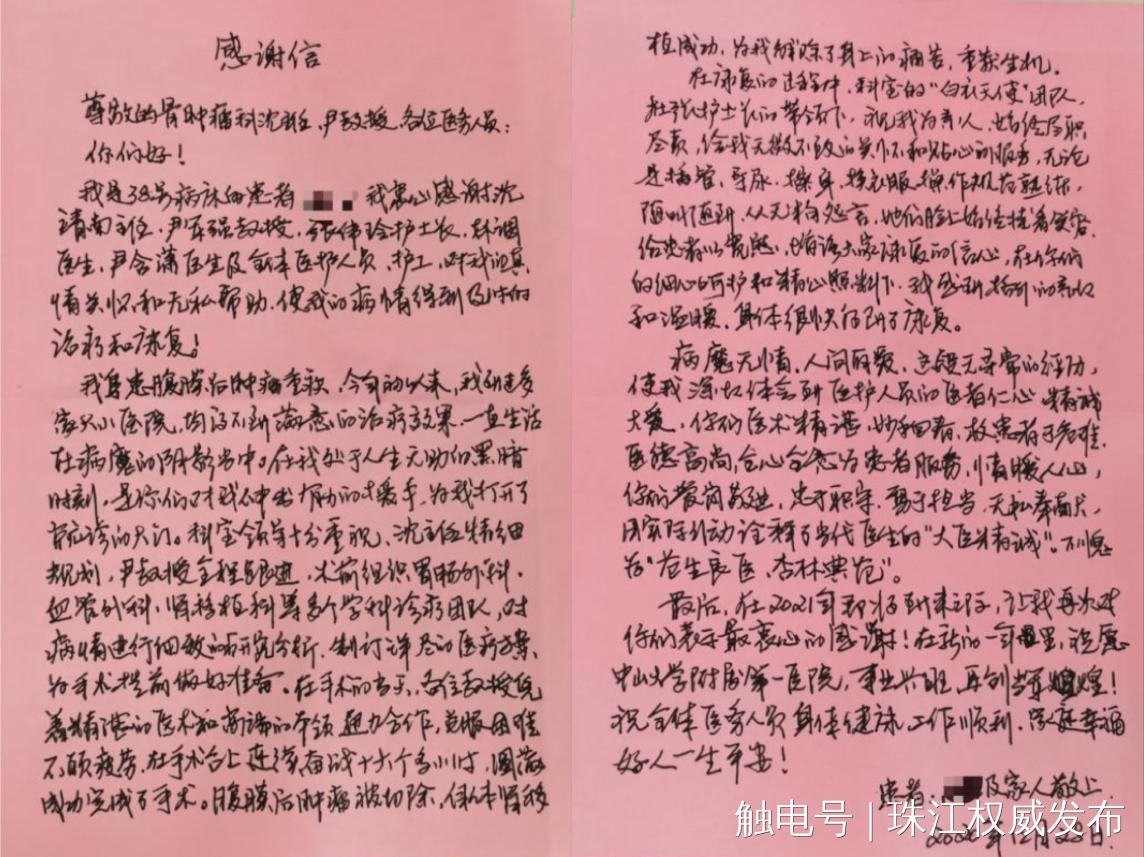 感谢信
尊敬的骨肿瘤科沈主任、尹教授、各位医务人员：
你们好！
我是38号病床的患者 我衷心感谢沈
靖南主任、尹军强教授、张伟玲护士长、林调
医生、尹含潇医生及全体医护人员、护工，对我的真
情关怀和无私帮助、使我的病情得到及时的
治疗和康复！
我身患腹膜后肿瘤重疾、今年初以来，我辗转多
家大小医院，均得不到满意的治疗效果，一直生活
在病魔的阴影当中。在我处于人生无助的黑暗
时刻、是你们对我伸出有力的援手、为我打开了
就诊的大门。科室领导十分重视、沈主任精细
规划，尹教授全程跟进、术前组织胃肠外科、
血管外科、肾移植科等多个学科诊疗团队，对
病情进行细致的研究分析、制订详尽的医疗方案、
为手术提前做好准备。在手术的当天、各位教授凭
着精湛的医术和高端的本领通力合作，克服困难
不顾疲劳、在手术台上连续奋战十六个多小时，圆满
成功完成了手术。腹膜后肿瘤被切除、自体肾移
植成功，为我解除了身上的病苦，重获生机。
在康复的过程中、科室的“白衣天使”团队、
在张护士长的带领下，视我为亲人，始终尽职
尽责，给我无微不致的关怀和贴心的服务，无论
是插管、导尿、擦身、换衣服、操作规范熟练，
随叫随到、从无半句怨言，她们脸上始终挂着笑容
给患者以宽慰、增强大家康复的信心，在你们
的细心呵护和精心照料下、我感到格外的亲切
和温暖、身体很快得到了康复。
病魔无情、人间有爱、这段无寻常的经历，
使我深切体会到医护人员的医者仁心 精诚
大爱，你们医术精湛，妙手回春，救患者于危难、
医德高尚，全心全意为患者服务，情暖人心，
你们爱岗敬业，忠于职守、勇于担当、无私奉献，
用实际行动诠释了当代医生的“大医精诚”。不愧
为“苍生良医、杏林典范”。
最后，在2021年即将到来之际，让我再次对
你们表示最衷心的感谢！在新的一年里，祝愿
中山大学附属第一医院，事业兴旺、再创辉煌！
祝全体医务人员身体健康、工作顺利、家庭幸福
好人一生平安！
患者： 及家人敬上
2020年12月28日
触电号 | 珠江权威发布